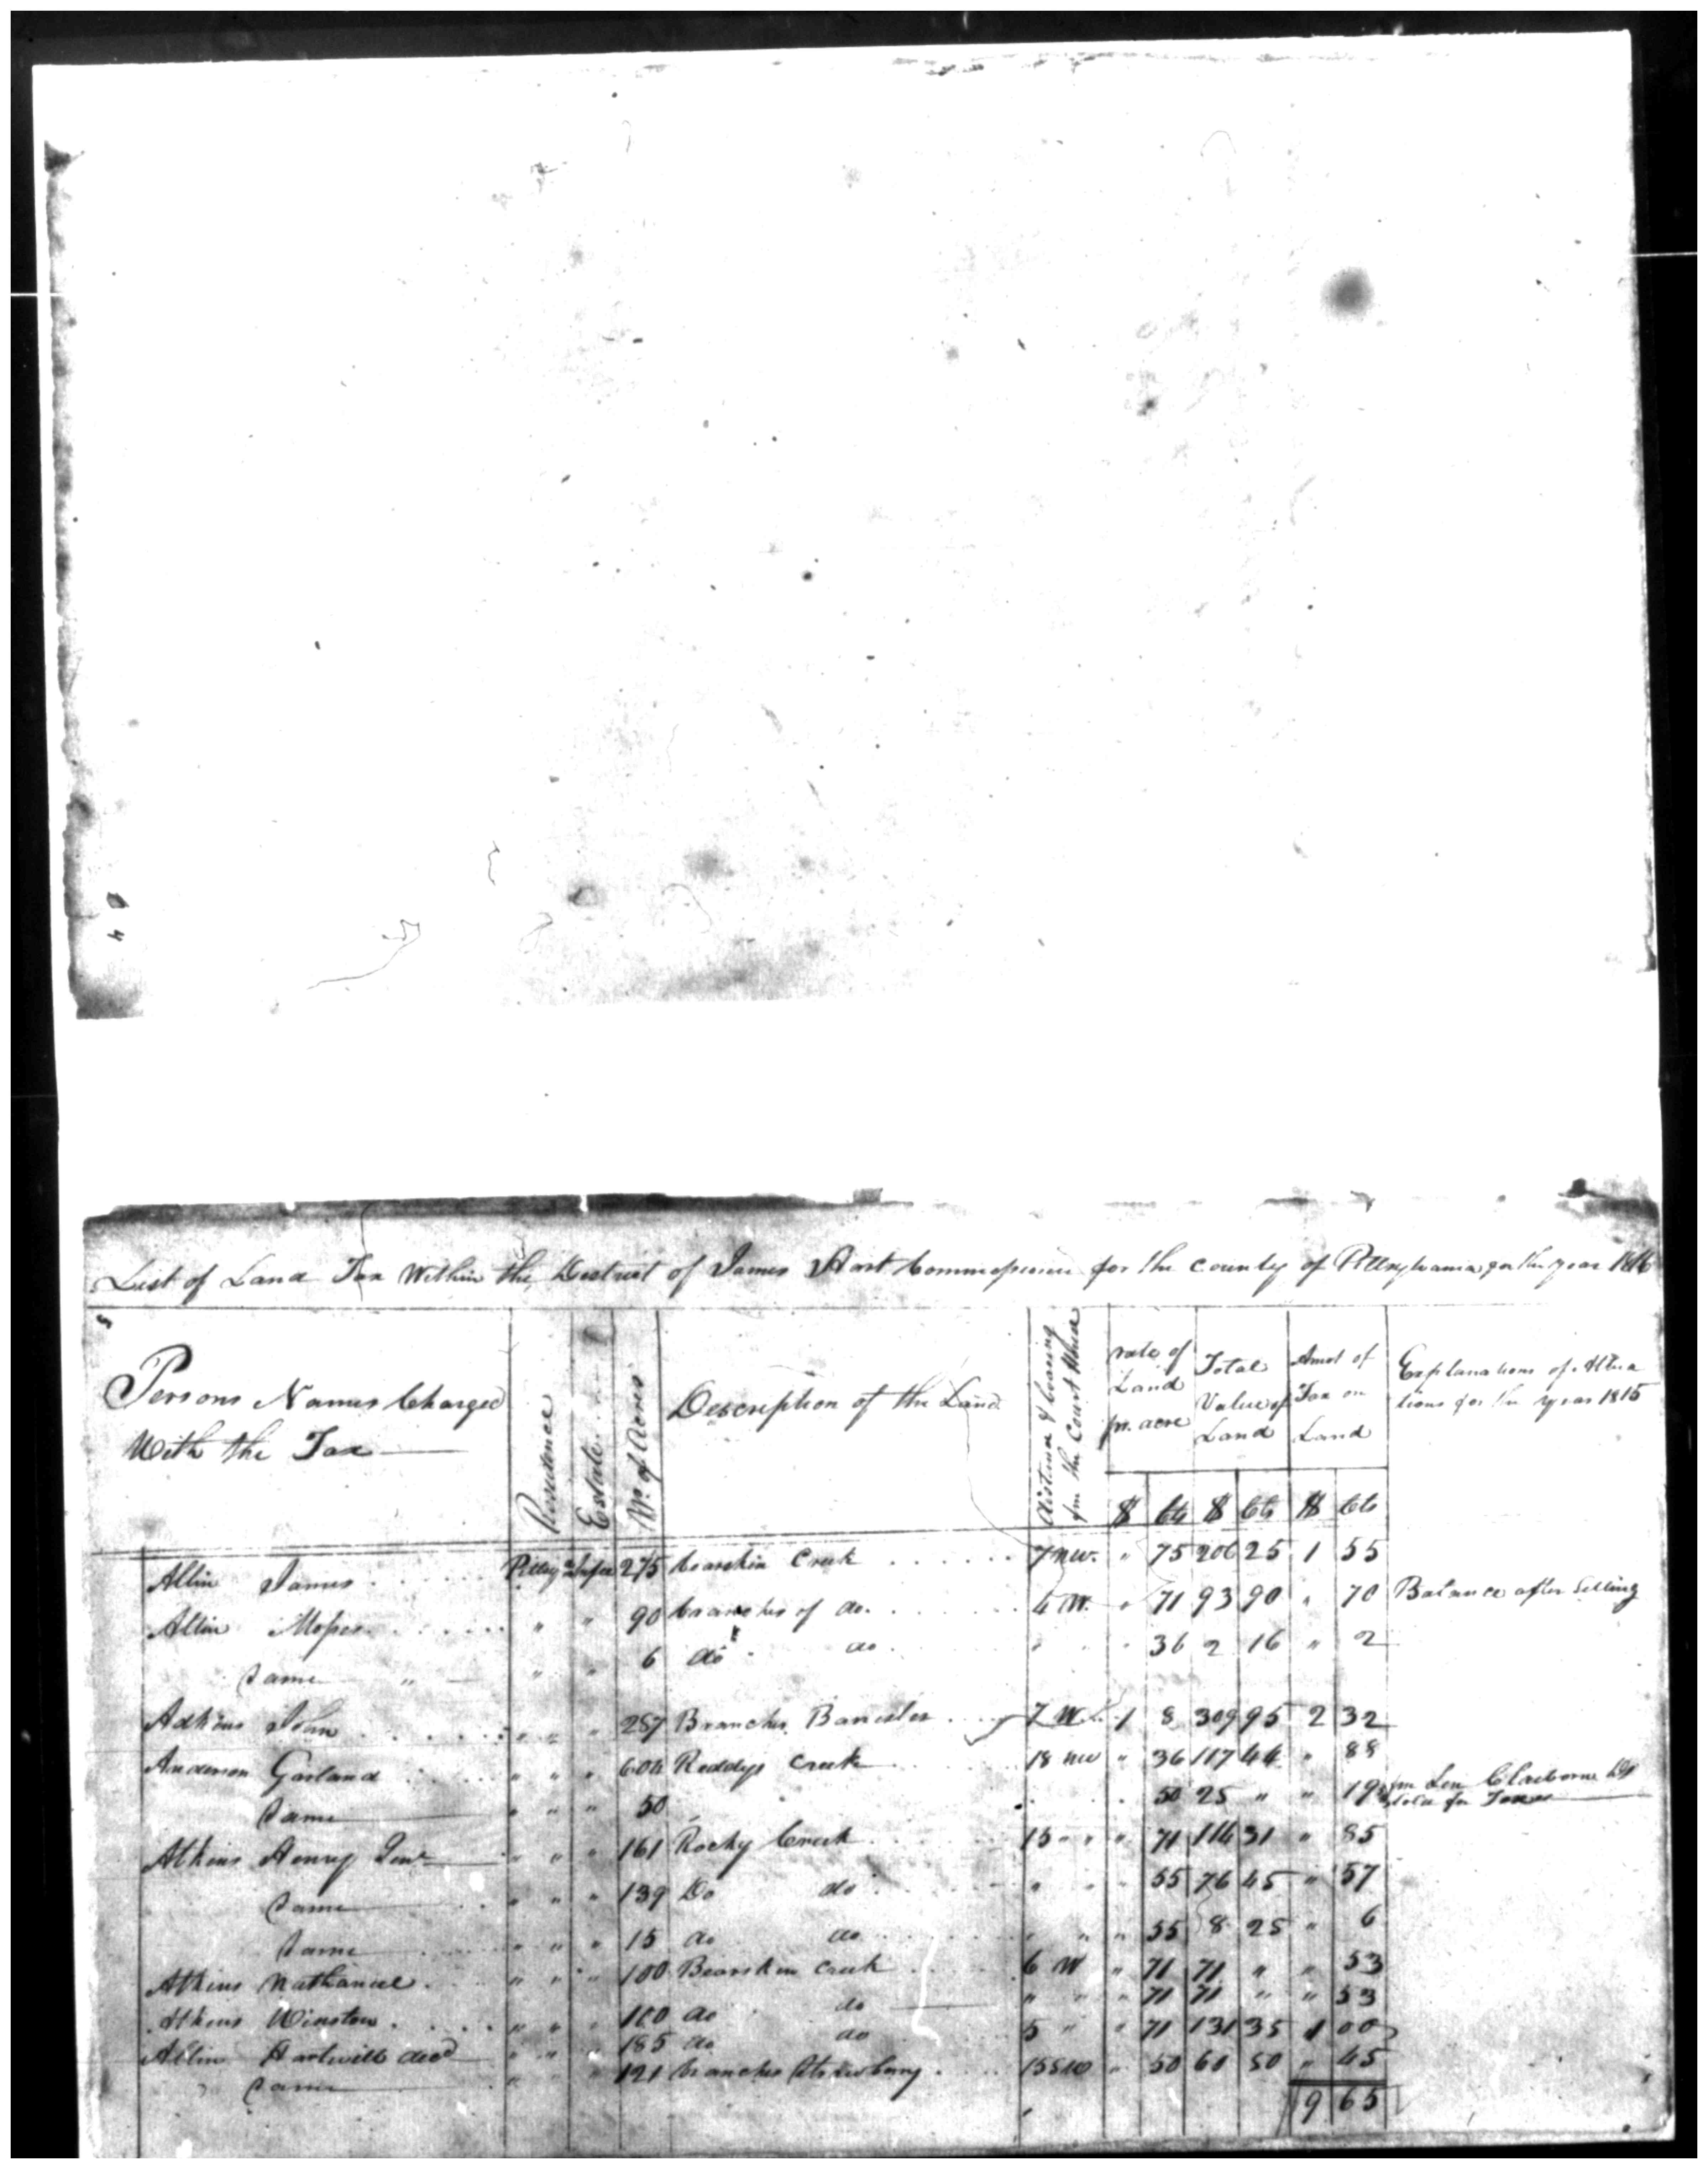 List of Land Tax Within the District of James Hart Commissioner for the county of Pittsylvania for the year 1816
Persons Names Charged With the Tax
Residence
Estate
No. of Acres
Description of the Land
distance & bearing fm the Court House
rate of Land pr. acre
Total Value of Land
Amot of Tax on Land
Explanations of Altera tions for the year 1815
$ Cts $ Cts $ Cts
Allin James 275 bearskin Creek 7 NW. " 75 206 25 1 55
Allin Moses " " 90 branches of do. 4 W. " 71 93 90 " 70 Balance after Selling
Same " " " 6 do do " " " 36 2 16 " 2
Adkins John " " " 287 Branches Banister 7 W 1 8 309 95 2 32
Anderson Garland " " " 604 Reddys Creek 18 NW " 36 117 44 " 88
Same " " " 50 50 25 " " 19 fm Leo Claiborne sold for Taxes
Atkins Henry Senr " " " 161 Rocky Creek 15 " " " 71 114 31 " 85
Same " " " 139 Do do " " " 55 76 45 " 57
Same " " " 15 do do " " " 55 8 25 " 6
Atkins Nathaniel " " " 100 Bearskin Creek 6 W " 71 71 " " 53
Atkins Winston " " " 100 do do " " " 71 71 " " 53
Allin Hartwill decd " " " 185 do do 5 " " 71 131 35 1 00
Same " " " 121 branches Strawberry 15 SW " 50 60 50 " 45
9 65